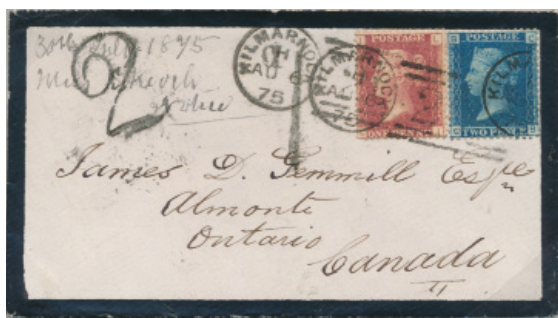 30th July 1875
2
KILMARNOCK
H
AU 6
75
KILMARNOCK
H
AU 6
75
POSTAGE
ONE PENNY
POSTAGE
TWO PENCE
KILM
James D. Gemmill Esqre
Almonte
Ontario
Canada